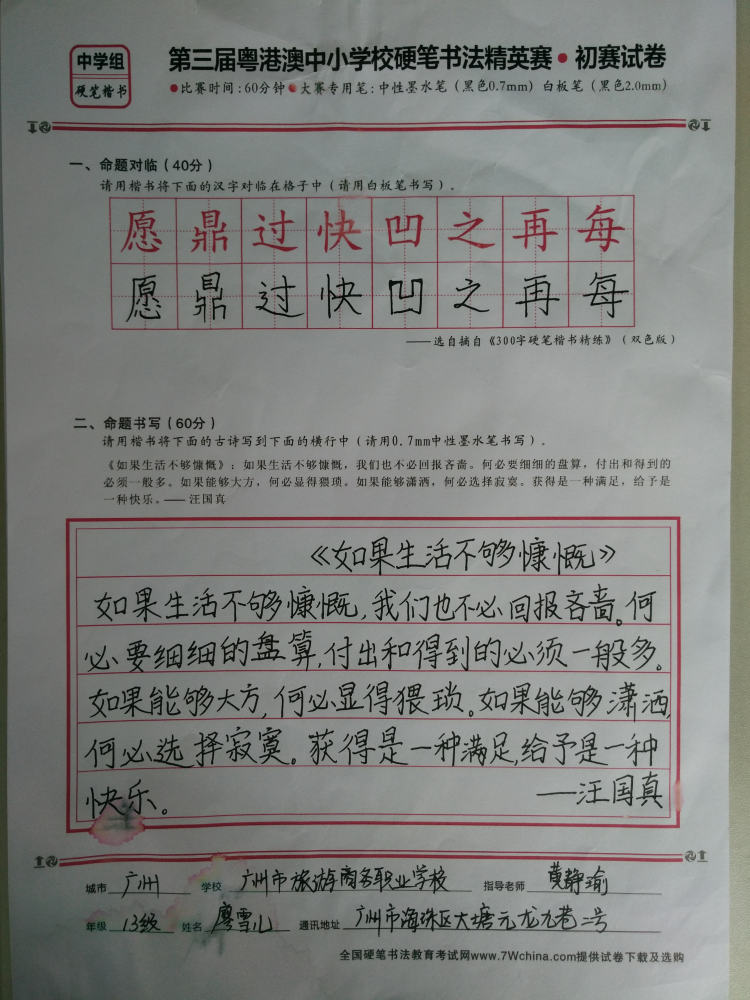 中学组
硬笔楷书
第三届粤港澳中小学校硬笔书法精英赛·初赛试卷
●比赛时间:60分钟●大赛专用笔:中性墨水笔(黑色0.7mm) 白板笔(黑色2.0mm)
一、命题对临(40分)
请用楷书将下面的汉字对临在格子中(请用白板笔书写)。
愿鼎过快凹之再每
愿鼎过快凹之再每
——选自摘自《300字硬笔楷书精练》(双色版)
二、命题书写(60分)
请用楷书将下面的古诗写到下面的横行中(请用0.7mm中性墨水笔书写)。
《如果生活不够慷慨》:如果生活不够慷慨,我们也不必回报吝啬。何必要细细的盘算,付出和得到的
必须一般多。如果能够大方,何必显得猥琐。如果能够潇洒,何必选择寂寞。获得是一种满足,给予是
一种快乐。——汪国真
《如果生活不够慷慨》
如果生活不够慷慨,我们也不必回报吝啬。何
必要细细的盘算,付出和得到的必须一般多。
如果能够大方,何必显得猥琐。如果能够潇洒,
何必选择寂寞。获得是一种满足,给予是一种
快乐。 ——汪国真
城市 广州 学校 广州市旅游商务职业学校 指导老师 黄静瑜
年级 13级 姓名 廖雪儿 通讯地址 广州市海珠区大塘元龙九巷二号
全国硬笔书法教育考试网www.7Wchina.com提供试卷下载及选购